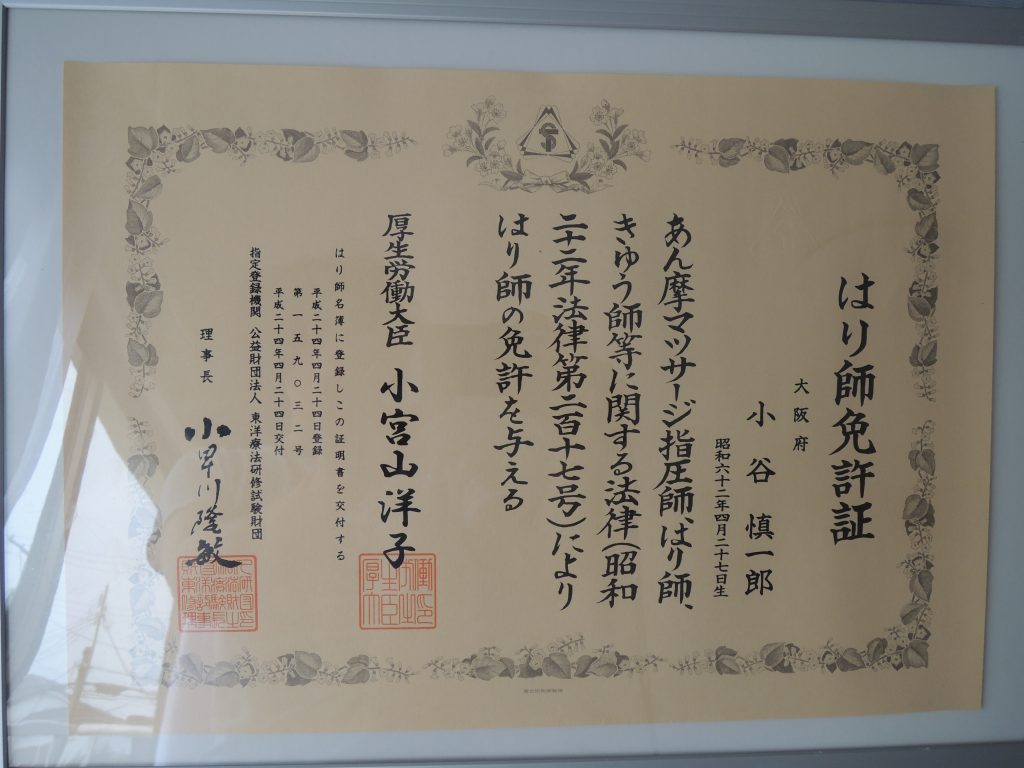 はり師免許証
大阪府
小谷慎一郎
昭和六十二年四月二十七日生
あん摩マツサージ指圧師、はり師、
きゆう師等に関する法律(昭和
二十二年法律第二百十七号)により
はり師の免許を与える
厚生労働大臣 小宮山洋子
はり師名簿に登録しこの証明書を交付する
平成二十四年四月二十四日登録
第一五九〇三二号
平成二十四年四月二十四日交付
指定登録機関 公益財団法人 東洋療法研修試験財団
理事長